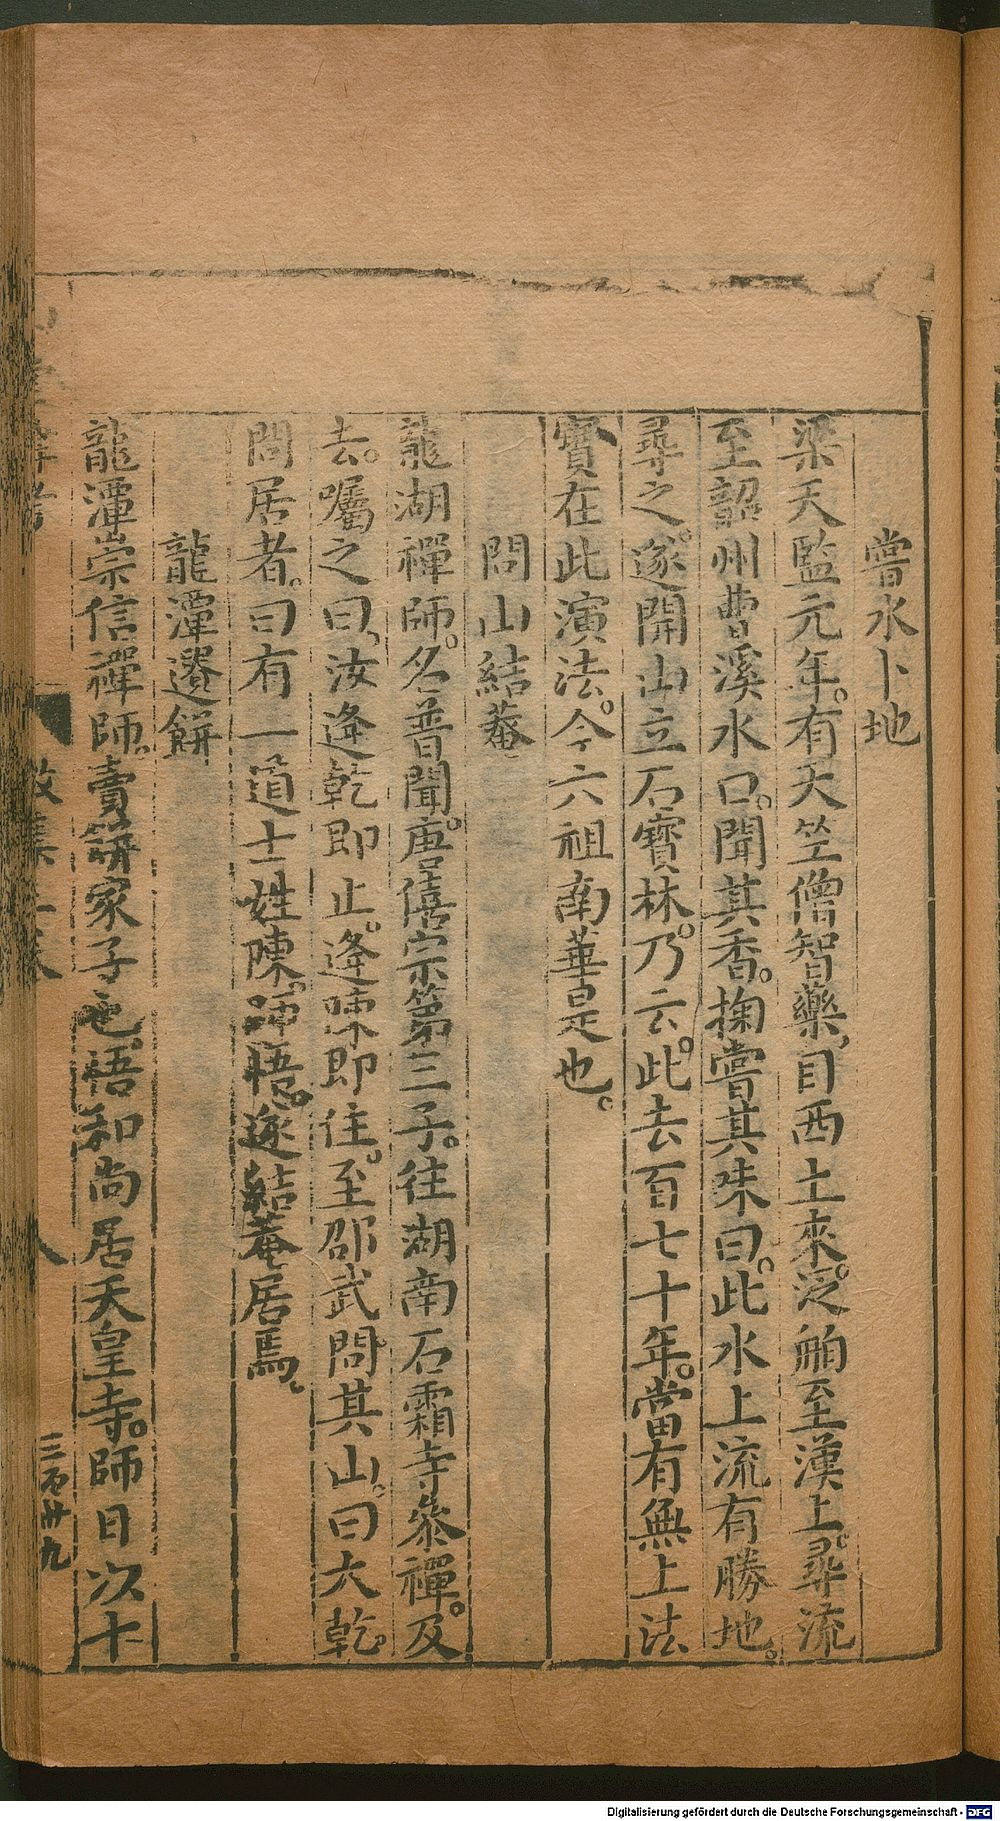 嘗水卜地
梁天監元年。有天竺僧智藥、自西土來。泛舶至漢上。尋流
至韶州曹溪水口。聞其香。掬嘗其味曰。此水上流有勝地。
尋之。遂開山立石寶林。乃云。此去百七十年。當有無上法
寳在此演法。今六祖南華是也。
問山結菴
龍湖禪師。名普聞。唐僖宗第三子。往湖南石霜寺叅禪。及
去。囑之曰、汝逢乾即止。逢陳即住。至邵武問其山。曰大乾。
問居者。曰有一道士姓陳。師悟。遂結菴居焉。
龍潭遺餅
龍潭崇信禪師。賣餅家子也悟和尚居天皇寺。師日次十
三百卅九
Digitalisierung gefördert durch die Deutsche Forschungsgemeinschaft - DFG